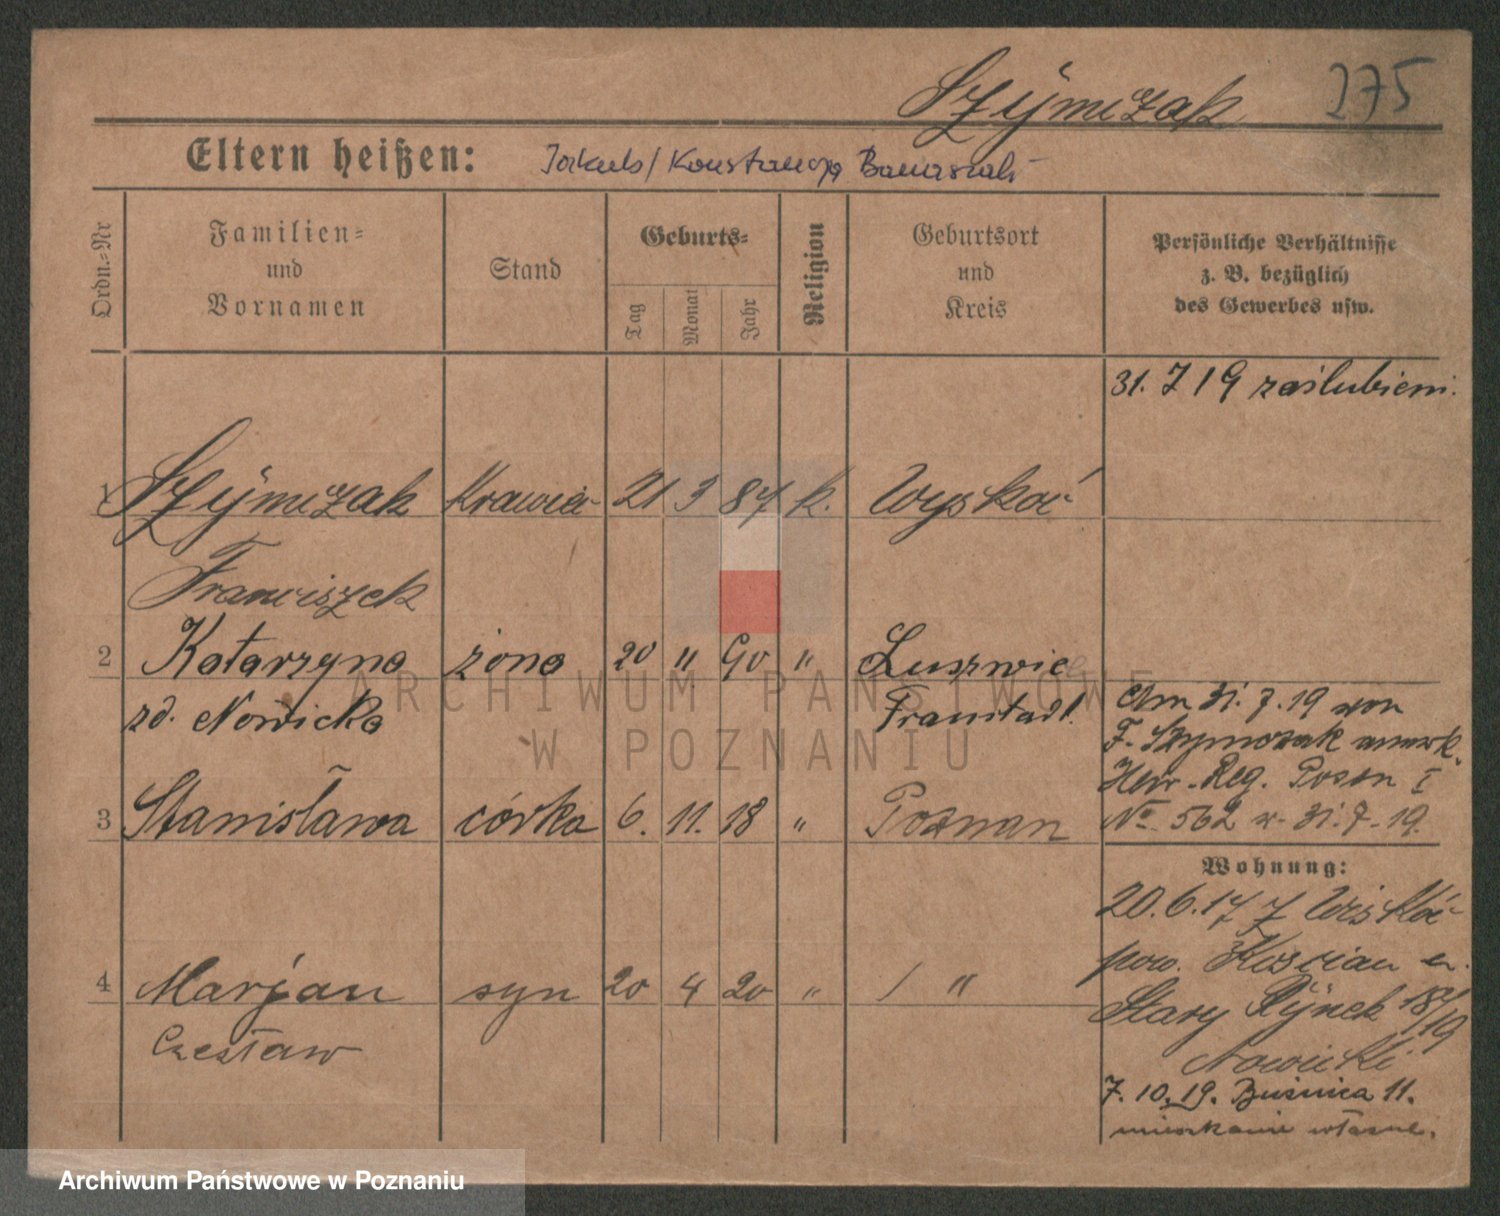 Szymczak 275
Eltern heißen: Jakub / Konstancja
Ordn.-Nr
Familien- und Vornamen
Stand
Geburts-
Tag
Monat
Jahr
Religion
Geburtsort und Kreis
Persönliche Verhältnisse
z. B. bezüglich
des Gewerbes usw.
31. 7 19 zaślubieni.
1 Szymczak Krawiec 21 3 87 k. Wyskoć
Franciszek
2 Katarzyna żona 20 " 90 " Luszwic
zd. Nowicka Fraustadt.
Am 31. 7. 19 von
F. Szymczak anerk.
Heir. Reg. Posen I
No 562 v. 31. 7. 19.
3 Stanisława córka 6. 11. 18 " Poznan
Wohnung:
20. 6. 17 z Wiskoć
pow. Kościan
4 Marjan syn 20 4 20 " / "
Czesław
Stary Rynek 18/19
Nowicki
7. 10. 19. 11.
mieszkanie własne.
ARCHIWUM PAŃSTWOWE
W POZNANIU
Archiwum Państwowe w Poznaniu